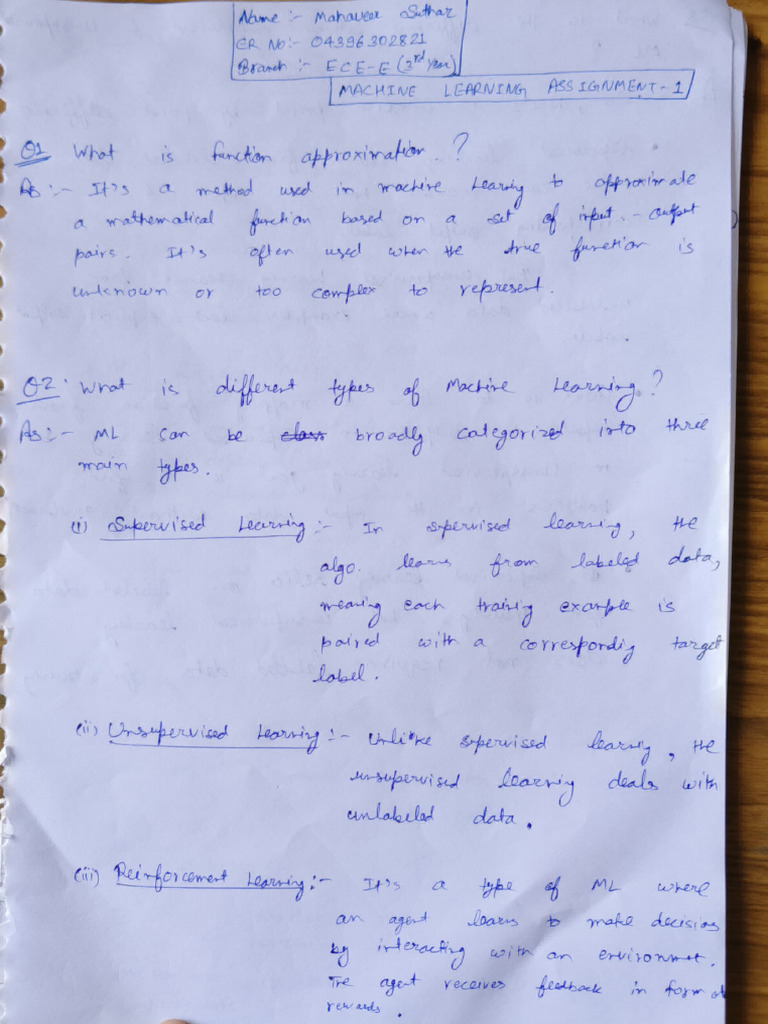 Name :- Mahaveer Suthar
ER No:- 04396302821
Branch :- ECE-E (3rd year)
MACHINE LEARNING ASSIGNMENT-1
Q1 What is function approximation. ?
As :- It's a method used in machine learing to approximate
a mathematical function based on a set of input - output
pairs. It's often used when the true function is
unknown or too complex to represent.
Q2. What is different types of Machine Learning?
As :- ML can be broadly categorized into three
main types.
(i) Supervised Learning :- In spervised learning, the
algo. learns from labeled data,
meaning each training example is
paired with a correspondig target
label.
(ii) Unsupervised Learning :- Unlike spervised learnig, the
unsupervised learning deals with
unlabeled data.
(iii) Reinforcement Learning :- It's a type of ML where
an agent learns to make decisions
by interacting with an environmet.
The agent receives feedback in form of
rewards.